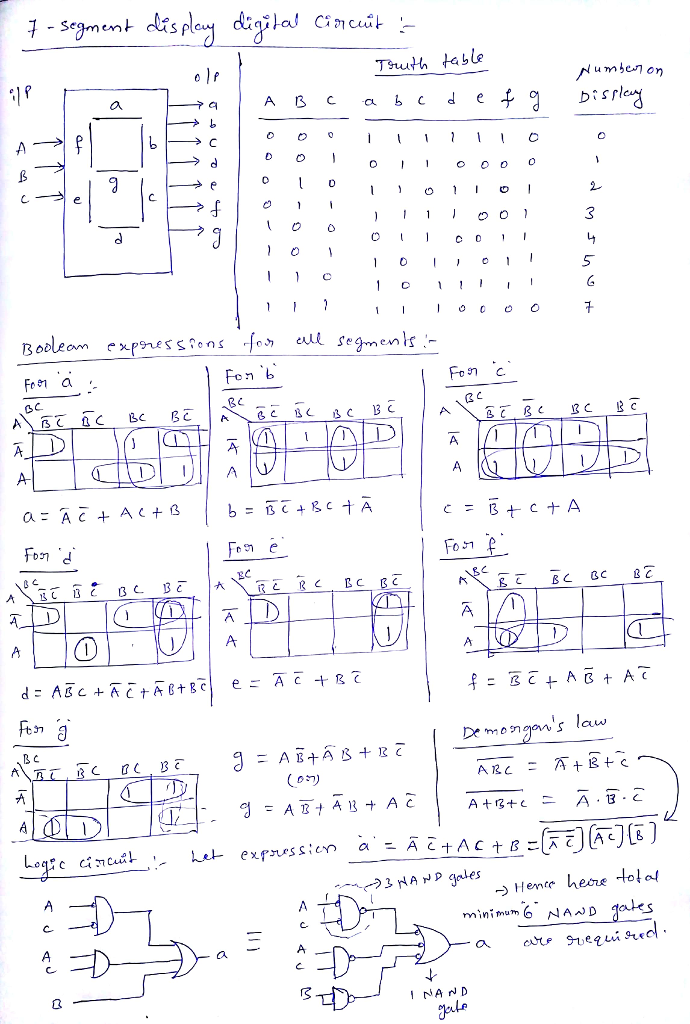 7-segment display digital circuit :-
i/p
o/p
a
b
c
d
e
f
g
A
B
C
a
b
c
d
e
f
g
Truth table
Number on
Display
A B C a b c d e f g
0 0 0 1 1 1 1 1 1 0 0
0 0 1 0 1 1 0 0 0 0 1
0 1 0 1 1 0 1 1 0 1 2
0 1 1 1 1 1 1 0 0 1 3
1 0 0 0 1 1 0 0 1 1 4
1 0 1 1 0 1 1 0 1 1 5
1 1 0 1 0 1 1 1 1 1 6
1 1 1 1 1 1 0 0 0 0 7
Boolean expressions for all segments :-
For 'a' :-
A BC B̅C̅ B̅C BC BC̅
A̅ 1 1 1
A 1 1 1
a = A̅C̅ + AC + B
For 'b'
A BC B̅C̅ B̅C BC BC̅
A̅ 1 1 1 1
A 1 1
b = B̅C̅ + BC + A̅
For 'c'
A BC B̅C̅ B̅C BC BC̅
A̅ 1 1 1
A 1 1 1 1
c = B̅ + C + A
For 'd'
A BC B̅C̅ B̅C BC BC̅
A̅ 1 1 1
A 1 1
d = AB̅C + A̅C̅ + A̅B + BC̅
For 'e'
A BC B̅C̅ B̅C BC BC̅
A̅ 1 1
A 1
e = A̅C̅ + BC̅
For 'f'
A BC B̅C̅ B̅C BC BC̅
A̅ 1
A 1 1 1
f = B̅C̅ + AB̅ + AC̅
For 'g'
A BC B̅C̅ B̅C BC BC̅
A̅ 1 1
A 1 1 1
g = AB̅ + A̅B + BC̅
(or)
g = AB̅ + A̅B + AC̅
Demorgan's law
A̅B̅C̅ = A̅ + B̅ + C̅
A̅+̅B̅+̅C̅ = A̅.B̅.C̅
Logic circuit :- Let expression 'a' = A̅C̅ + AC + B = [A̅C̅] [AC] [B̅]
A
C
A
C
B
a
≡
A
C
A
C
B
a
→ 3 NAND gates
1 NAND
gate
→ Hence here total
minimum '6' NAND gates
are required.